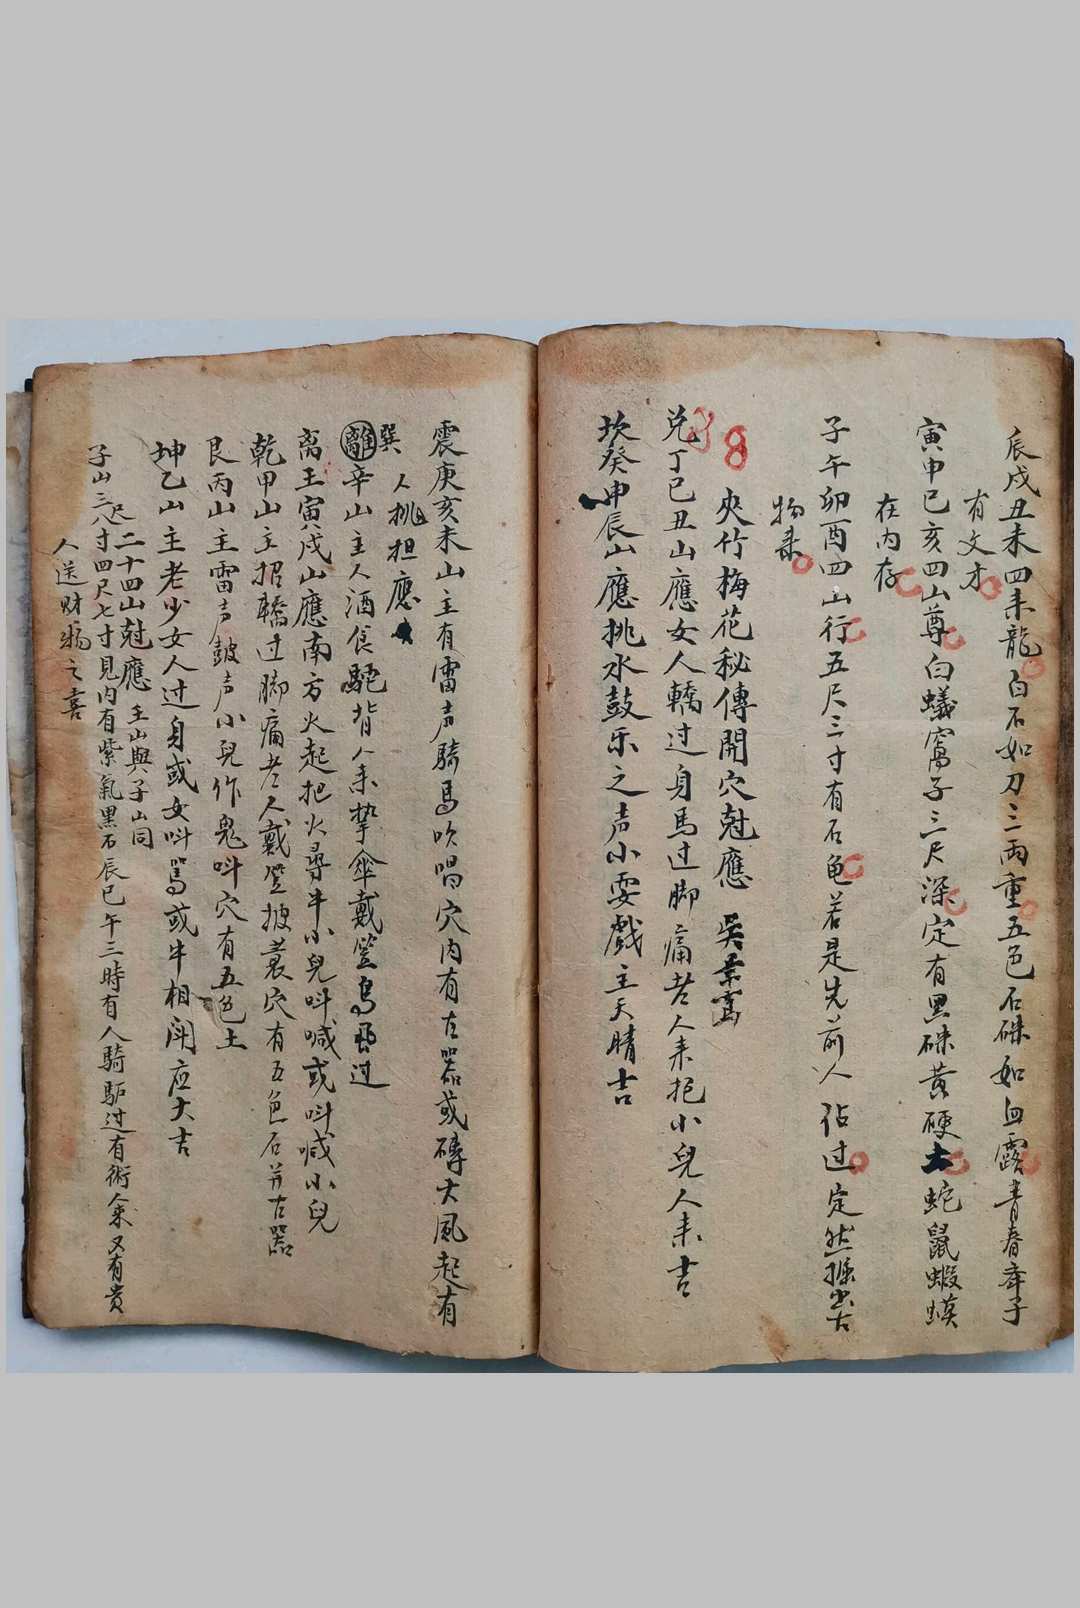 辰戌丑未四未龍白石如刀三両重五色石硃如血露青春年子
有文才
寅申巳亥四山尊白蟻窩子三尺深定有黑硃黄硬土蛇鼠蝦蟆
在内存
子午卯酉四山行五尺三寸有石龟若是先前人佔过定然掘出古
物来
夾竹梅花秘傳開穴尅應 吳景鸞
兑丁巳丑山應女人轎过身馬过脚痛老人来抱小兒人来吉
坎癸申辰山應挑水鼓乐之声小耍戲主天晴吉
震庚亥未山主有雷声騎馬吹唱穴内有古器或磚大風起有
人挑担應
巽辛山主人酒食駝背人来擎傘戴笠鳥飛过
离壬寅戌山應南方火起把火尋牛小兒呌喊或呌喊小兒
乾甲山主招轎过脚痛老人戴笠披蓑穴有五色石并古器
艮丙山主雷声鼓声小兒作鬼呌穴有五色土
坤乙山主老少女人过身或女呌罵或牛相闘应大吉
二十四山尅應 壬山與子山同
子山三尺八寸四尺七寸見内有紫氣黑石辰巳午三時有人騎馿过有術人来又有贵
人送财物之喜